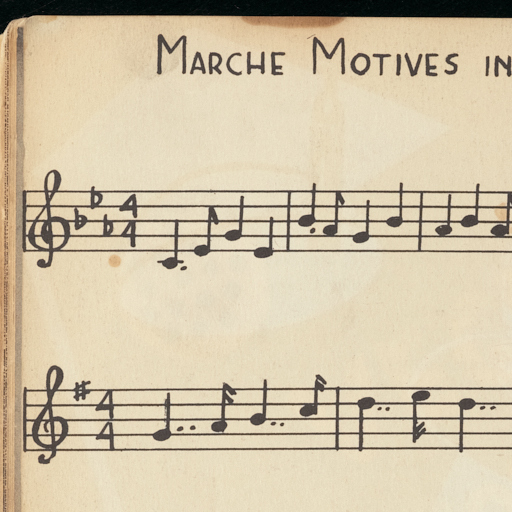 MARCHE MOTIVES IN
4
4
4
4